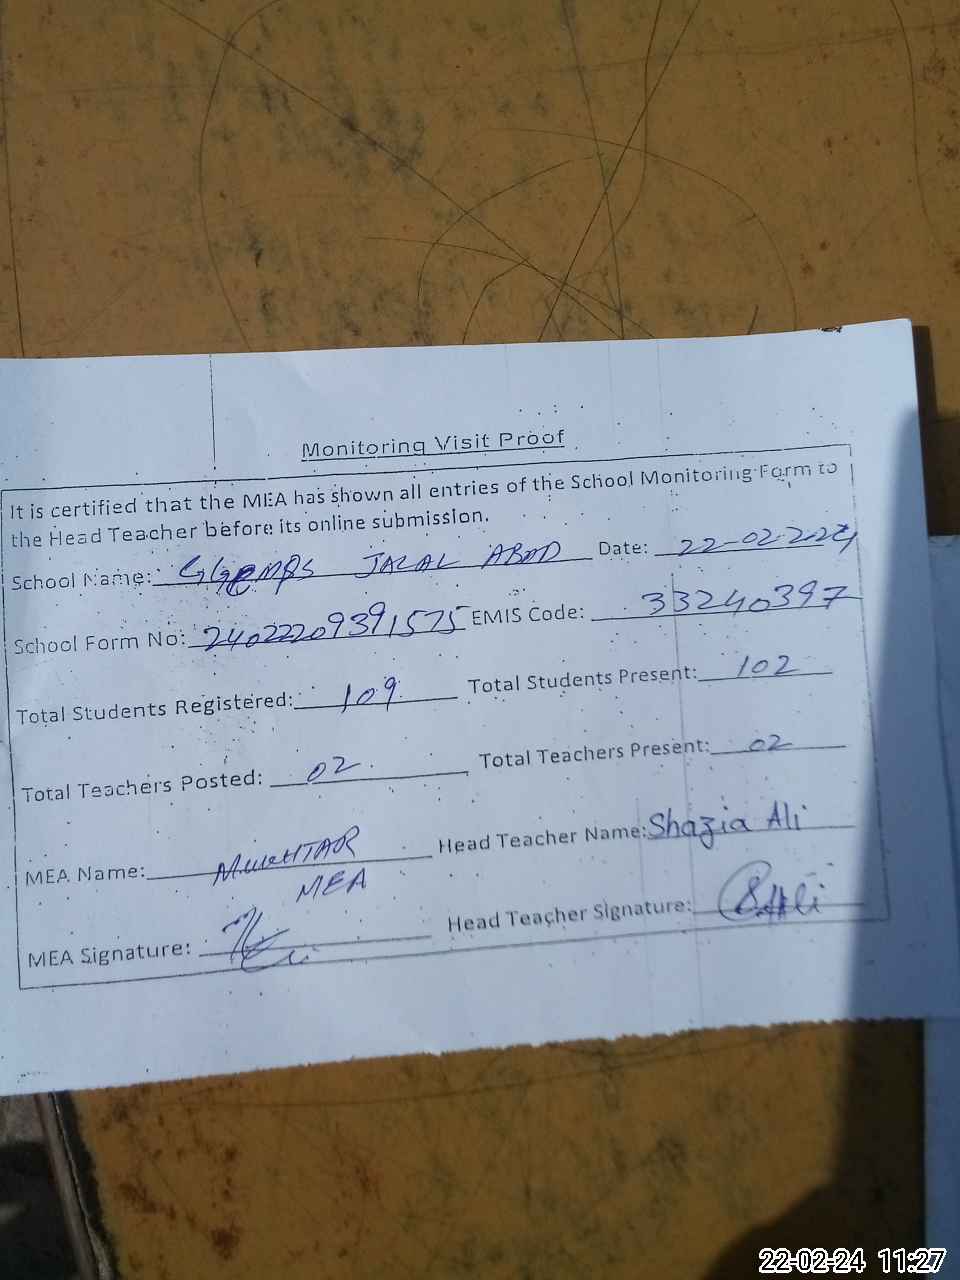 Monitoring Visit Proof
It is certified that the MEA has shown all entries of the School Monitoring Form to
the Head Teacher before its online submission.
School Name: JALAL ABAD Date: 22-02-2024
School Form No: 24022209391575 EMIS Code: 33240397
Total Students Registered: 109 Total Students Present: 102
Total Teachers Posted: 02 Total Teachers Present: 02
MEA Name: MUKHTAR Head Teacher Name: Shazia Ali
MEA
MEA Signature: Head Teacher Signature: S.Ali
22-02-24 11:27